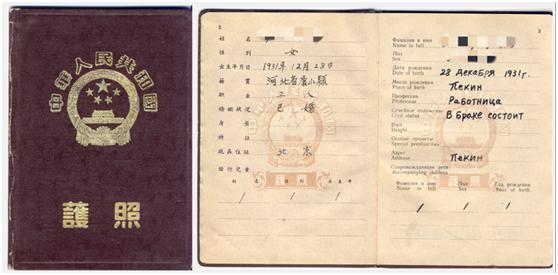 中華人民共和國
護照
2
姓名
性別 女
出生年月日 1931年12月28日
籍貫 河北省唐山縣
職業 工人
婚姻狀況 已婚
身長
特徵
現在住址 北京
偕行兒童
姓名 性別 出生年
/ / /
護照
3
Фамилия и имя
Name in full
Пол
Sex
Дата рождения
Date of birth 28 декабря 1931г.
Место рождения
Place of birth Пекин
Профессия
Profession Работница
Семейное положение
Civil status В браке состоит
Рост
Height
Особые приметы
Special peculiarities
Адрес
Address Пекин
Сопровождающие дети
Accompanying children
Фамилия и имя Пол Год рождения
Name in full Sex Year of birth
/ / /
護照